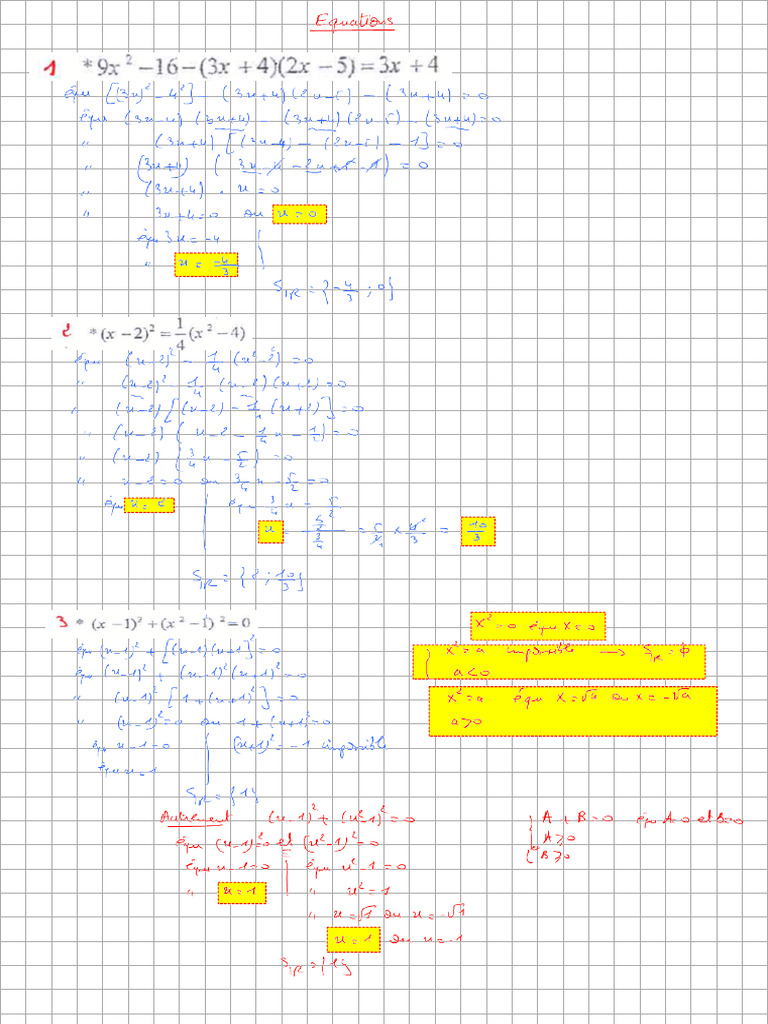 Equations
1 * 9x² − 16 − (3x + 4)(2x − 5) = 3x + 4
équ [(3x)² − 4²] − (3x+4)(2x−5) − (3x+4) = 0
équ (3x−4)(3x+4) − (3x+4)(2x−5) − (3x+4) = 0
" (3x+4) [(3x−4) − (2x−5) − 1] = 0
" (3x+4) (3x − 4 − 2x + 5 − 1) = 0
" (3x+4) . x = 0
" 3x+4=0 ou x = 0
équ 3x = −4
" x = −4/3
S_IR = {−4/3 ; 0}
2 * (x − 2)² = 1/4 (x² − 4)
équ (x−2)² − 1/4 (x²−2²) = 0
" (x−2)² − 1/4 (x−2)(x+2) = 0
" (x−2) [(x−2) − 1/4 (x+2)] = 0
" (x−2) (x − 2 − 1/4 x − 1/2) = 0
" (x−2) (3/4 x − 5/2) = 0
" x−2=0 ou 3/4 x − 5/2 = 0
équ x = 2 équ 3/4 x = 5/2
x = (5/2)/(3/4) = 5/2 × 4²/3 = 10/3
S_IR = {2 ; 10/3}
3 * (x − 1)² + (x² − 1)² = 0
équ (x−1)² + [(x−1)(x+1)]² = 0
équ (x−1)² + (x−1)²(x+1)² = 0
" (x−1)² [1 + (x+1)²] = 0
" (x−1)² = 0 ou 1 + (x+1)² = 0
équ x−1=0 (x+1)² = −1 impossible
équ x=1
S_IR = {1}
X² = 0 équ X = 0
{ X² = a impossible → S_IR = ϕ
a < 0
X² = a équ X = √a ou X = −√a
a > 0
Autrement (x−1)² + (x²−1)² = 0
équ (x−1)² = 0 et (x²−1)² = 0
équ x−1=0 équ x²−1 = 0
" x = 1 " x² = 1
" x = √1 ou x = −√1
x = 1 ou x = −1
S_IR = {1}
{ A + B = 0 équ A=0 et B=0
A ⩾ 0
B ⩾ 0